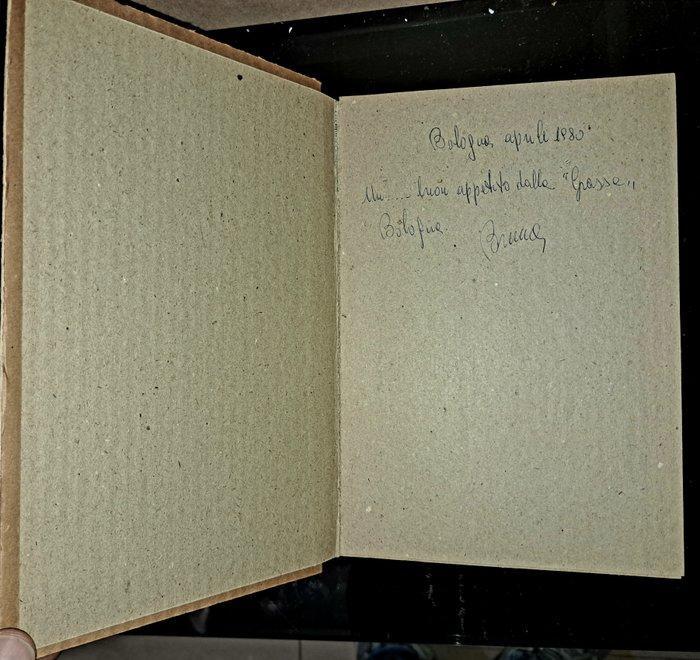 Bologna, aprile 1980
Un .... buon appetito dalla "Grassa"
Bologna. Bruna